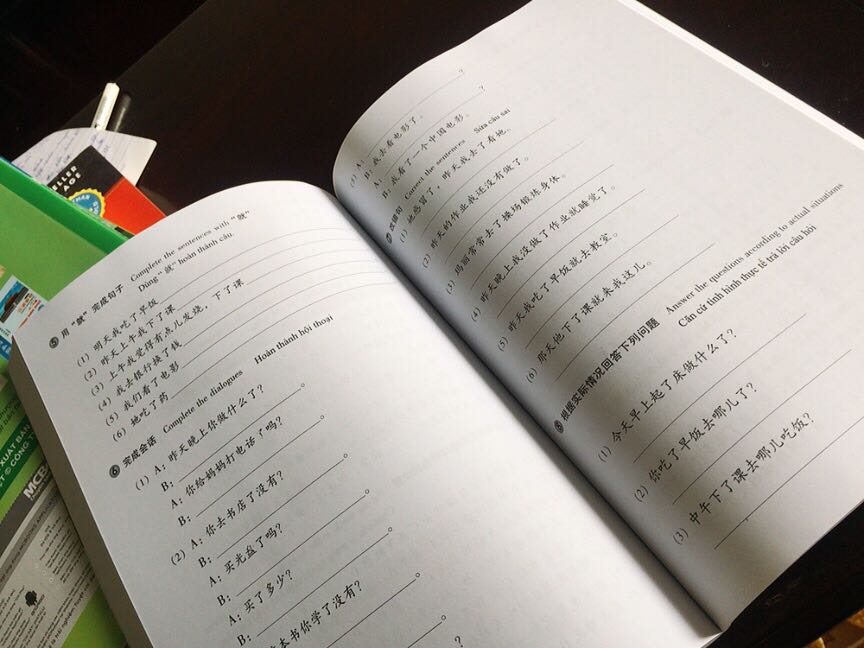 ⑤ 用“就”完成句子 Complete the sentences with “就”
Dùng “就” hoàn thành câu
(1) 明天我吃了早饭
(2) 昨天上午我下了课
(3) 上午我觉得有点儿发烧,下了课
(4) 我去银行换了钱
(5) 我们看了电影
(6) 她吃了药
⑥ 完成会话 Complete the dialogues Hoàn thành hội thoại
(1) A:昨天晚上你做什么了?
B: 。
A:你给妈妈打电话了吗?
B: 。
(2) A:你去书店了没有?
B: 。
A:买光盘了吗?
B: 。
A:买了多少?
B: 。
本书你学了没有?
?
?
(5) A: ?
B:我去看电影了。
A: ?
B:我看了一个中国电影。
⑦ 改错句 Correct the sentences Sửa câu sai
(1) 她感冒了,昨天我去了看她。
(2) 昨天的作业我还没有做了。
(3) 玛丽常常去了操场锻炼身体。
(4) 昨天晚上我没做了作业就睡觉了。
(5) 昨天我吃了早饭就去教室。
(6) 那天他下了课就来我这儿。
⑧ 根据实际情况回答下列问题 Answer the questions according to actual situations
Căn cứ tình hình thực tế trả lời câu hỏi
(1) 今天早上起了床做什么了?
(2) 你吃了早饭去哪儿了?
(3) 中午下了课去哪儿吃饭?
XUẤT BẢN
CÔNG T
MCB